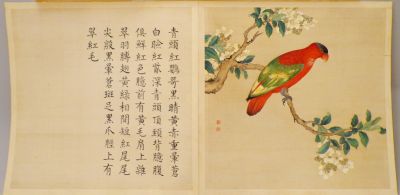 青頭紅鸚哥黑睛黃赤重暈蒼
白臉紅嘴深青頭頂頸背臆腹
俱鮮紅色臆前有黃毛肩上雜
翠羽膊翅黃綠相間短紅尾尾
尖般黑暈蒼斑足黑爪脛上有
翠紅毛